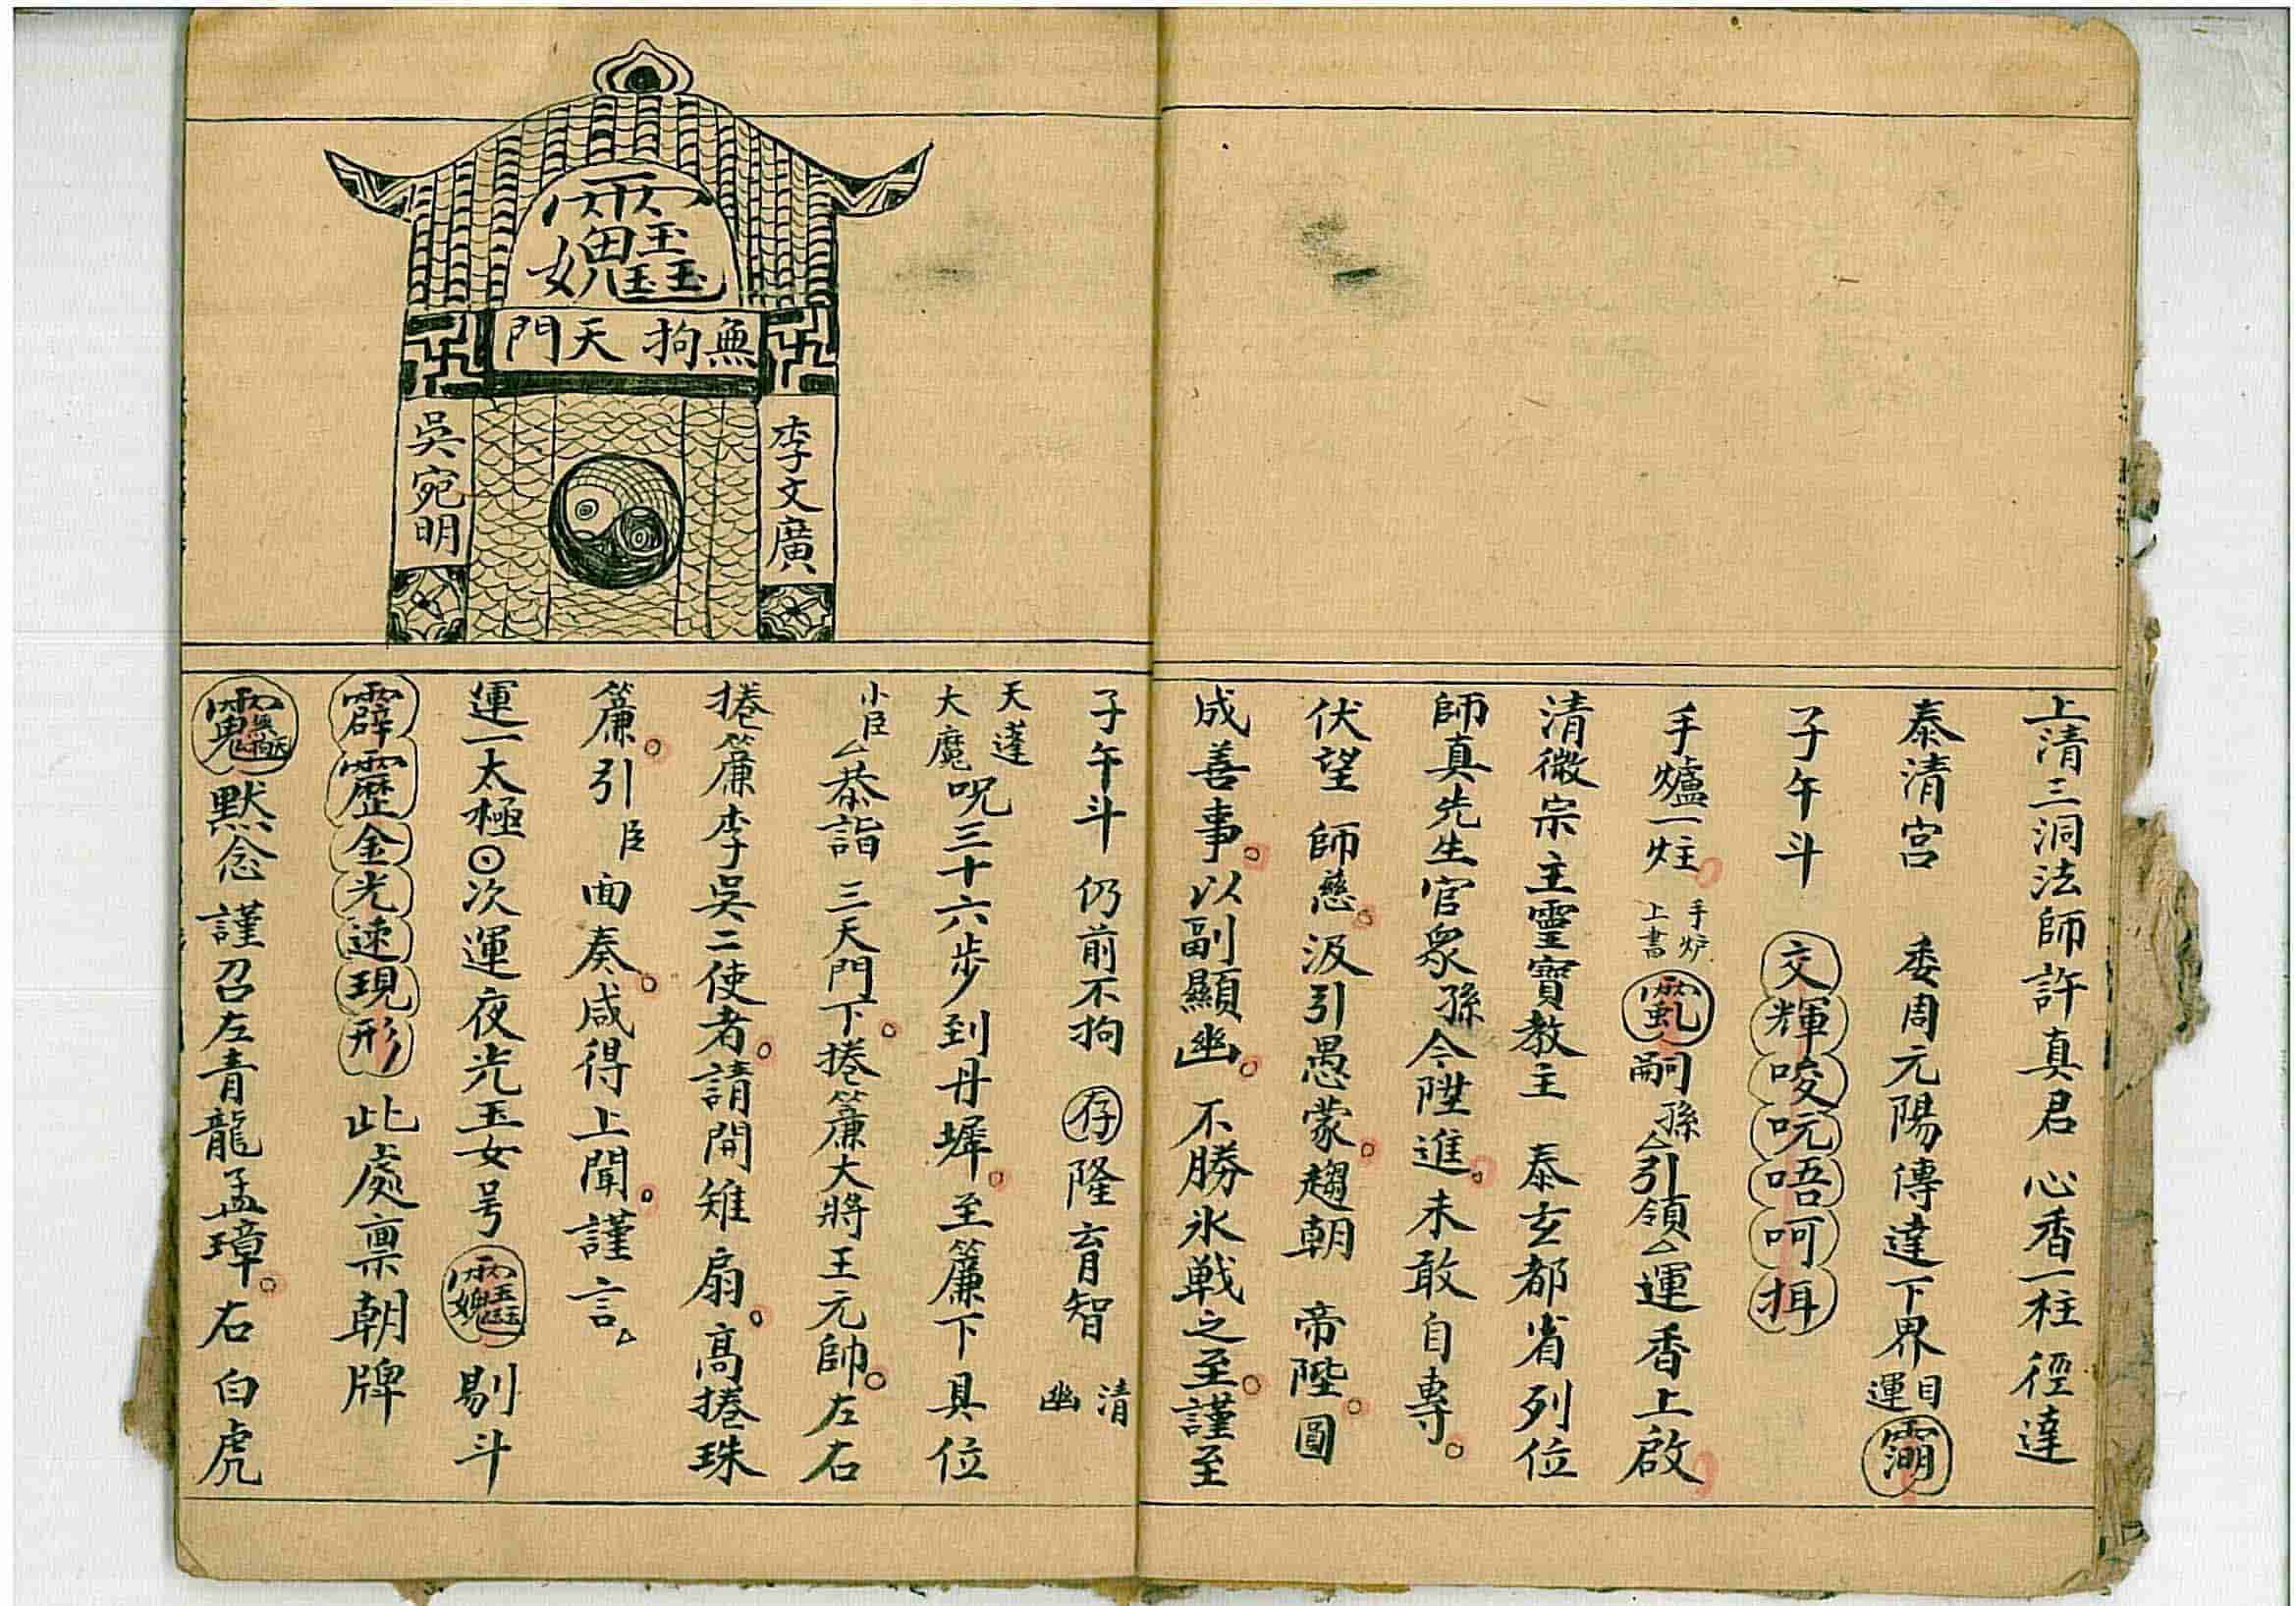 上清三洞法師許真君 心香一柱 徑達
泰清宮 委周元陽傳達下界 目運
子午斗 交輝唆吭唔呵揖
手爐一炷 手炉上書 嗣孫厶引領厶運香上啟
清微宗主靈寶教主 泰玄都省列位
師真先生官眾孫今陞進未敢自專
伏望 師慈汲引愚蒙趨朝 帝陛圓
成善事以副顯幽 不勝氷戦之至謹至
子午斗 仍前不拘 存隆育智 清幽
天蓬大魔呪三十六步到丹墀至簾下具位
小臣厶恭詣 三天門下捲簾大將王元帥左右
捲簾李吳二使者請開雉扇高捲珠
簾引 臣 面奏咸得上聞謹言
運一太極次運夜光玉女号 剔斗
霹靂金光速現形 此處禀朝牌
默念 謹召左青龍孟璋右白虎
無拘天門
李文廣
吳宛明